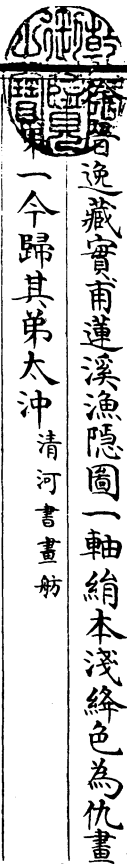 逸藏實甫蓮溪漁隠圖一軸絹本淺絳色為仇畫
第一今歸其弟太沖清河書畫舫